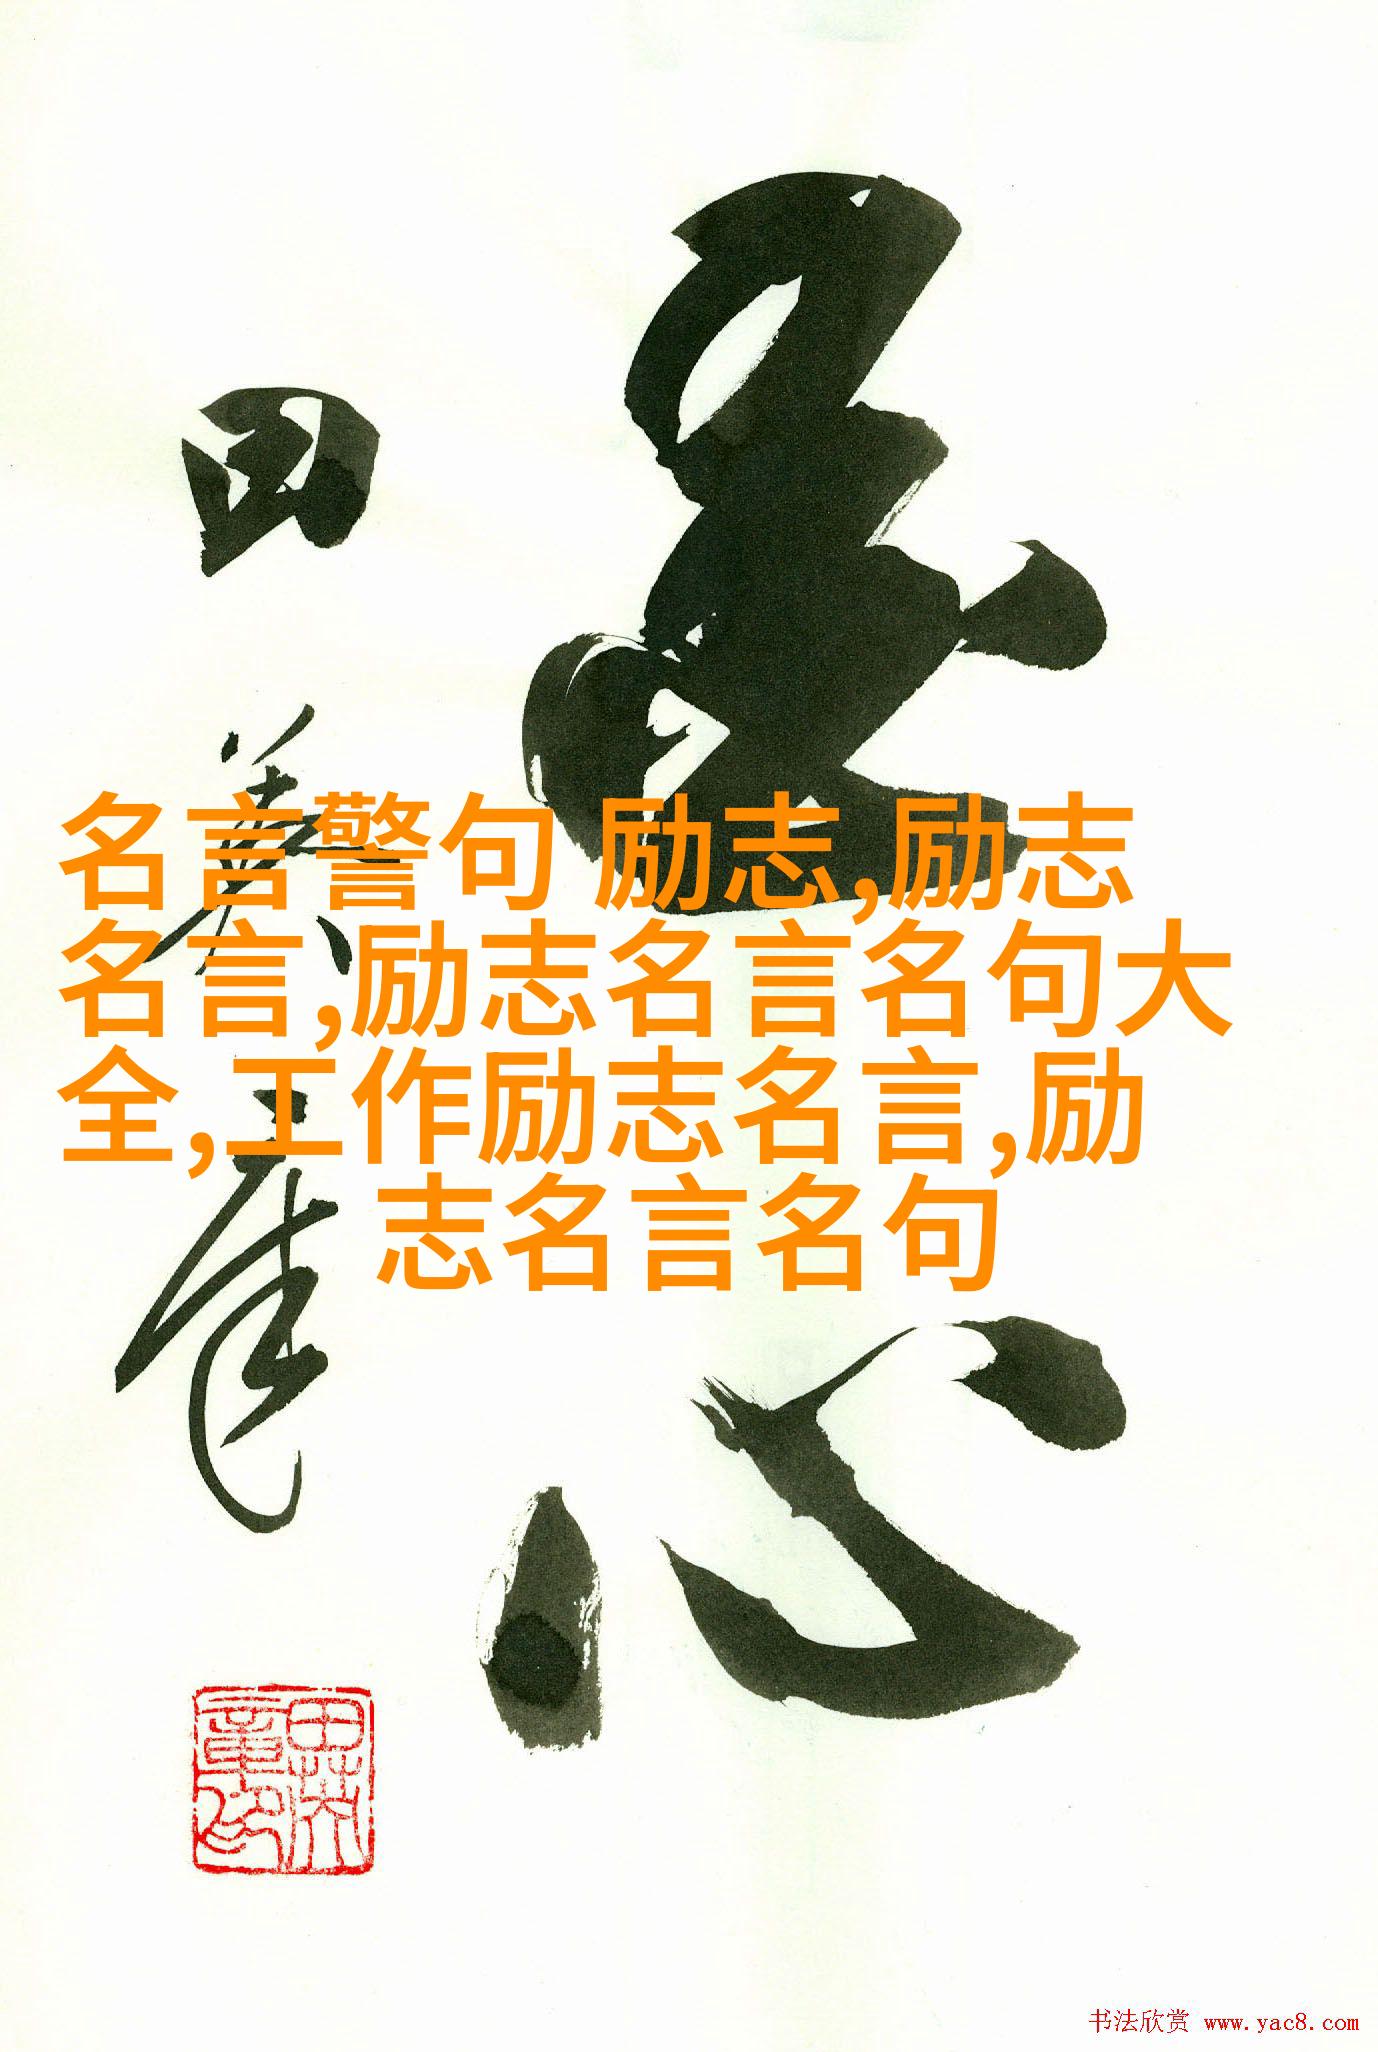 名言警句 励志,励志
名言,励志名言名句大
全,工作励志名言,励
志名言名句
心
田英章
田英章印
书法欣赏 www.yac8.com